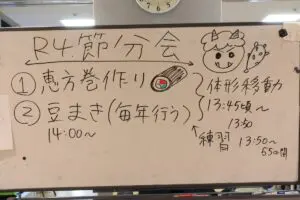 R4節分会
①恵方巻作り
②豆まき(毎年行う)
14:00〜
体形移動
13:45頃〜
13:50
練習 13:50〜
55の間